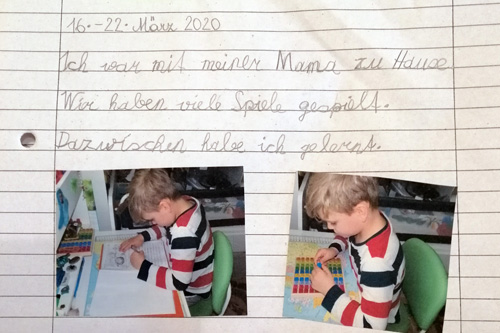 16.-22. März 2020
Ich war mit meiner Mama zu Hause
Wir haben viele Spiele gespielt.
Dazwischen habe ich gelernt.